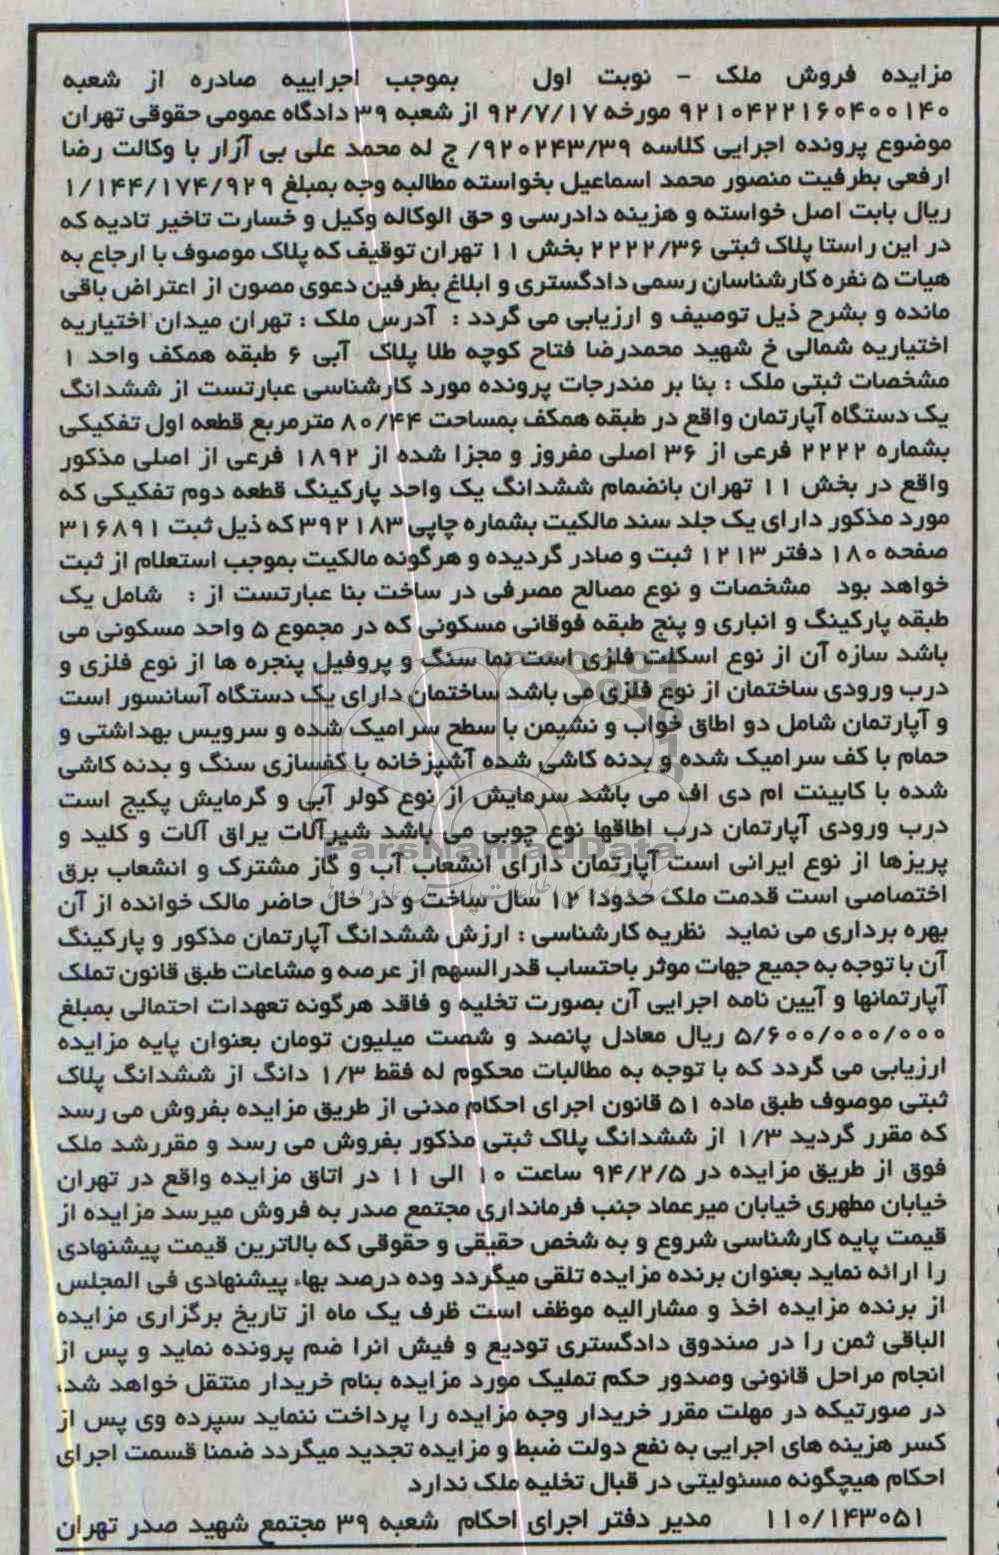 مزایده فروش ملک - نوبت اول بموجب اجراییه صادره از شعبه
۹۲۱۰۴۲۲۱۶۰۴۰۰۱۴۰ مورخه ۹۲/۷/۱۷ از شعبه ۳۹ دادگاه عمومی حقوقی تهران
موضوع پرونده اجرایی کلاسه ۹۲۰۲۴۳/۳۹/ ج له محمد علی بی آزار با وکالت رضا
ارفعی بطرفیت منصور محمد اسماعیل بخواسته مطالبه وجه بمبلغ ۱/۱۴۴/۱۷۴/۹۲۹
ریال بابت اصل خواسته و هزینه دادرسی و حق الوکاله وکیل و خسارت تاخیر تادیه که
در این راستا پلاک ثبتی ۲۲۲۲/۳۶ بخش ۱۱ تهران توقیف که پلاک موصوف با ارجاع به
هیات ۵ نفره کارشناسان رسمی دادگستری و ابلاغ بطرفین دعوی مصون از اعتراض باقی
مانده و بشرح ذیل توصیف و ارزیابی می گردد : آدرس ملک : تهران میدان اختیاریه
اختیاریه شمالی خ شهید محمدرضا فتاح کوچه طلا پلاک آبی ۶ طبقه همکف واحد ۱
مشخصات ثبتی ملک : بنا بر مندرجات پرونده مورد کارشناسی عبارتست از ششدانگ
یک دستگاه آپارتمان واقع در طبقه همکف بمساحت ۸۰/۴۴ مترمربع قطعه اول تفکیکی
بشماره ۲۲۲۲ فرعی از ۳۶ اصلی مفروز و مجزا شده از ۱۸۹۲ فرعی از اصلی مذکور
واقع در بخش ۱۱ تهران بانضمام ششدانگ یک واحد پارکینگ قطعه دوم تفکیکی که
مورد مذکور دارای یک جلد سند مالکیت بشماره چاپی ۳۹۲۱۸۳ که ذیل ثبت ۳۱۶۸۹۱
صفحه ۱۸۰ دفتر ۱۲۱۳ ثبت و صادر گردیده و هرگونه مالکیت بموجب استعلام از ثبت
خواهد بود مشخصات و نوع مصالح مصرفی در ساخت بنا عبارتست از : شامل یک
طبقه پارکینگ و انباری و پنج طبقه فوقانی مسکونی که در مجموع ۵ واحد مسکونی می
باشد سازه آن از نوع اسکلت فلزی است نما سنگ و پروفیل پنجره ها از نوع فلزی و
درب ورودی ساختمان از نوع فلزی می باشد ساختمان دارای یک دستگاه آسانسور است
و آپارتمان شامل دو اطاق خواب و نشیمن با سطح سرامیک شده و سرویس بهداشتی و
حمام با کف سرامیک شده و بدنه کاشی شده آشپزخانه با کفسازی سنگ و بدنه کاشی
شده با کابینت ام دی اف می باشد سرمایش از نوع کولر آبی و گرمایش پکیج است
درب ورودی آپارتمان درب اطاقها نوع چوبی می باشد شیرآلات یراق آلات و کلید و
پریزها از نوع ایرانی است آپارتمان دارای انشعاب آب و گاز مشترک و انشعاب برق
اختصاصی است قدمت ملک حدودا ۱۲ سال ساخت و در حال حاضر مالک خوانده از آن
بهره برداری می نماید نظریه کارشناسی : ارزش ششدانگ آپارتمان مذکور و پارکینگ
آن با توجه به جمیع جهات موثر باحتساب قدرالسهم از عرصه و مشاعات طبق قانون تملک
آپارتمانها و آیین نامه اجرایی آن بصورت تخلیه و فاقد هرگونه تعهدات احتمالی بمبلغ
۵/۶۰۰/۰۰۰/۰۰۰ ریال معادل پانصد و شصت میلیون تومان بعنوان پایه مزایده
ارزیابی می گردد که با توجه به مطالبات محکوم له فقط ۱/۳ دانگ از ششدانگ پلاک
ثبتی موصوف طبق ماده ۵۱ قانون اجرای احکام مدنی از طریق مزایده بفروش می رسد
که مقرر گردید ۱/۳ از ششدانگ پلاک ثبتی مذکور بفروش می رسد و مقررشد ملک
فوق از طریق مزایده در ۹۴/۲/۵ ساعت ۱۰ الی ۱۱ در اتاق مزایده واقع در تهران
خیابان مطهری خیابان میرعماد جنب فرمانداری مجتمع صدر به فروش میرسد مزایده از
قیمت پایه کارشناسی شروع و به شخص حقیقی و حقوقی که بالاترین قیمت پیشنهادی
را ارائه نماید بعنوان برنده مزایده تلقی میگردد وده درصد بهاء پیشنهادی فی المجلس
از برنده مزایده اخذ و مشارالیه موظف است ظرف یک ماه از تاریخ برگزاری مزایده
الباقی ثمن را در صندوق دادگستری تودیع و فیش انرا ضم پرونده نماید و پس از
انجام مراحل قانونی وصدور حکم تملیک مورد مزایده بنام خریدار منتقل خواهد شد.
در صورتیکه در مهلت مقرر خریدار وجه مزایده را پرداخت ننماید سپرده وی پس از
کسر هزینه های اجرایی به نفع دولت ضبط و مزایده تجدید میگردد ضمنا قسمت اجرای
احکام هیچگونه مسئولیتی در قبال تخلیه ملک ندارد
۱۱۰/۱۴۳۰۵۱ مدیر دفتر اجرای احکام شعبه ۳۹ مجتمع شهید صدر تهران
ParsNamadData